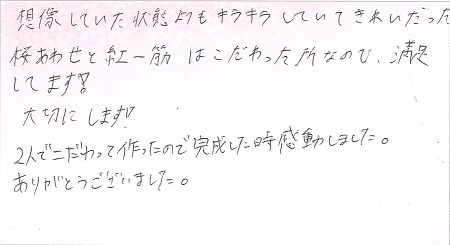 想像していた状態よりもキラキラしていてきれいだった
桜あわせと紅一筋はこだわった所なので、満足
してます!!
大切にします!!
2人でこだわって作ったので完成した時感動しました。
ありがとうございました。